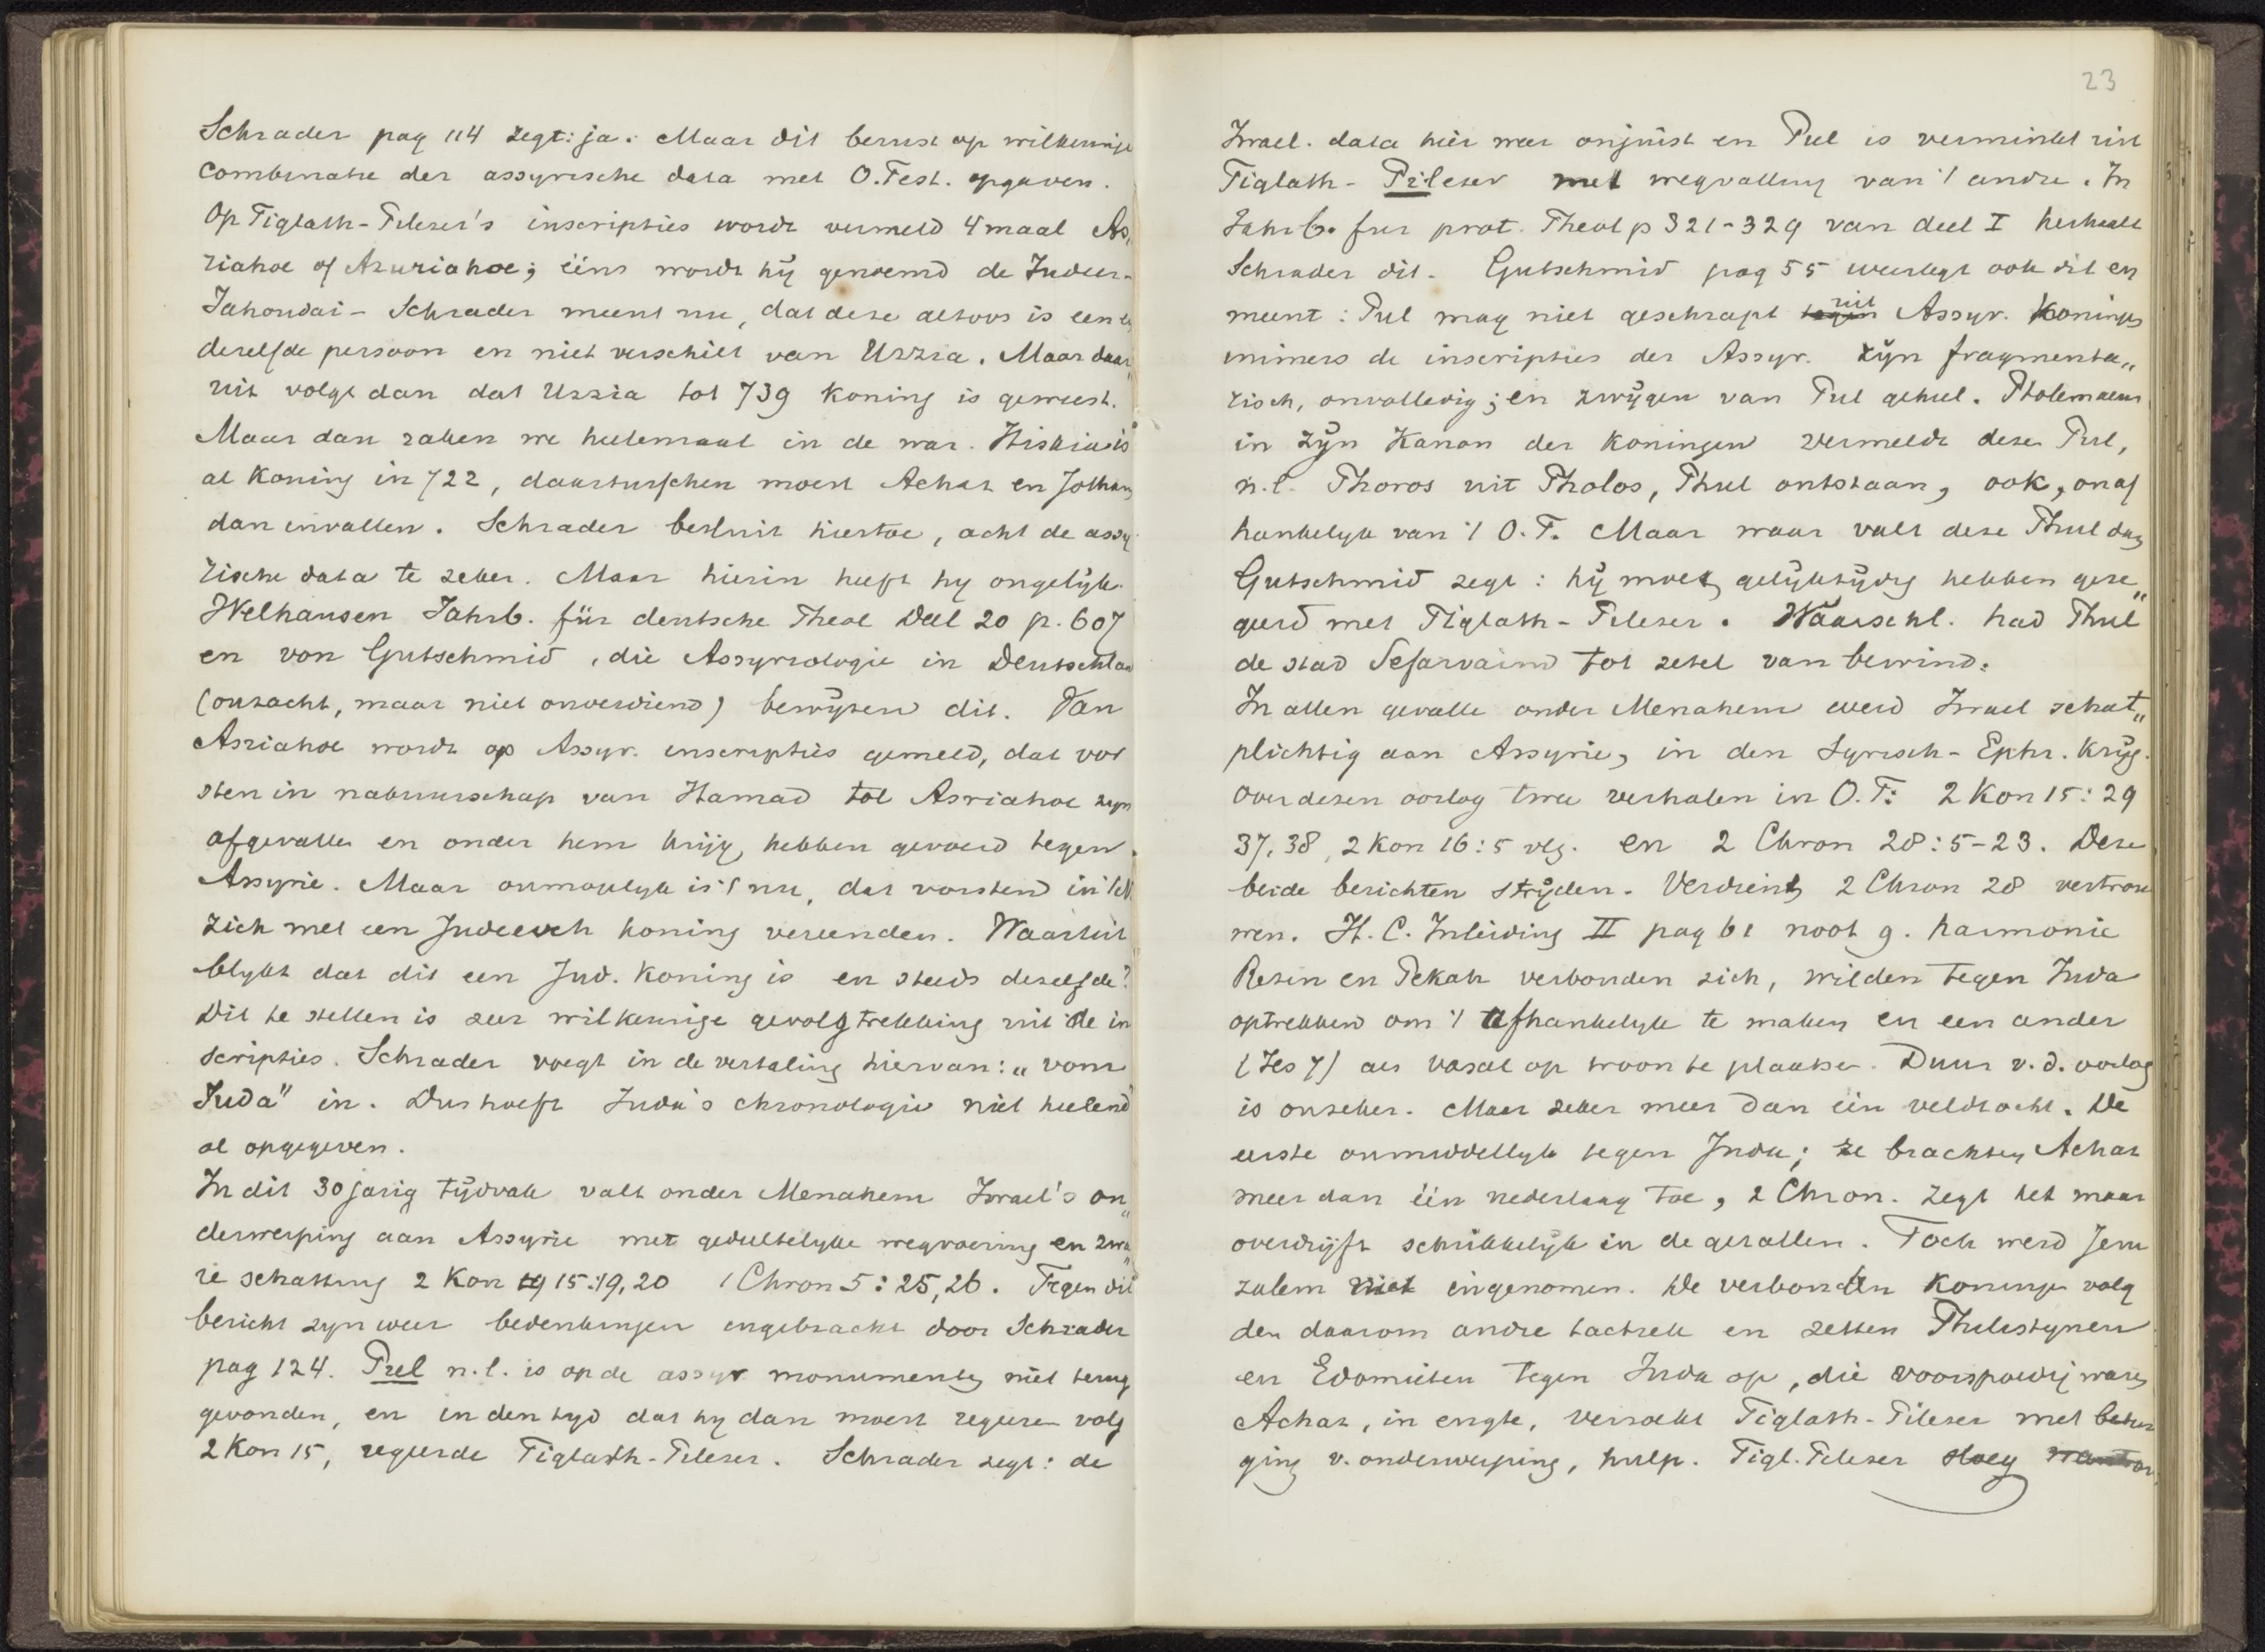 Schrader pag 114 zegt: ja. Maar dit berust op willkeurige
combinatie der assyrische data met O.Test. opgaven.
Op Tiglath-Pileser's inscripties wordt vermeld 4 maal As,
riahoe of Azuriahoe; ééns wordt hÿ genoemd de Judeer-
Jahoudai - Schrader meent nu, dat deze altoos is een en
dezelfde persoon en niet verschilt van Uzzia. Maar daar„
uit volgt dan dat Uzzia tot 739 koning is geweest.
Maar dan raken we heelemaal in de war. Hiskia is
al koning in 722, daartusschen moest Achaz en Jotham
dan invallen. Schrader besluit hiertoe, acht de assy
rische data te zeker. Maar hierin heeft hy ongelÿk.
Welhausen Jahrb. für deutsche Theol Deel 20 p. 607
en von Gutschmid, die Assyriologie in Deutschland
(onzacht, maar niet onverdiend) bewÿzen dit. Van
Asriahoe wordt op Assyr. inscripties gemeld, dat vor
sten in nabuurschap van Hamad tot Asriahoe zyn
afgevallen en onder hem krijg hebben gevoerd tegen
Assyrie. Maar onmogelyk is 't nu, dat vorsten in 't N.
zich met een Judeesch koning vereenden. Waaruit
blykt dat dit een Jud. koning is en steeds dezelfde?
Dit te stellen is zeer wilkeurige gevolgtrekking uit de in
scripties. Schrader voegt in de vertaling hiervan: „vom
Juda" in. Dus hoeft Juda's chronologie niet heelend
al opgegeven.
In dit 30 jarig tÿdvak valt onder Menahem Israel's on„
derwerping aan Assyrie met gedeeltelyke wegvoering en zwa„
re schatting 2 Kon 15:19,20 1 Chron 5:25,26. Tegen dit
bericht zyn weer bedenkingen ingebracht door Schrader
pag 124. Puel n.l. is op de assyr monumenten niet terug
gevonden, en in den tyd dat hy dan moest regeeren volg
2 Kon 15, regeerde Tiglath-Pileser. Schrader zegt: de
23
Israel. data hier weer onjuist en Pul is verminkt uit
Tiglath-Pileser met wegvalling van 't andre. In
Jahrb. fur prot. Theol p 321-329 van deel I herhaalt
Schrader dit. Gutschmid pag 55 weerlegt ook dit en
meent: Pul mag niet geschrapt tegen uit Assyr. koningen
immers de inscripties der Assyr. zÿn fragmenta„
risch, onvolledig; en zwÿgen van Pul geheel. Ptolemaeus
in zÿn Kanon der koningen vermeldt deze Pul,
n.l. Phoros uit Pholos, Phul ontstaan, ook, onaf
hankelyk van 't O.T. Maar waar valt deze Phul dan
Gutschmid zegt: hÿ moet gelÿktÿdig hebben gere„
geerd met Tiglath-Pileser. Waarschl. had Phul
de stad Sefarvaim tot zetel van bewind.
In allen gevalle onder Menahem werd Israel schat„
plichtig aan Assyrie, in den Syrisch-Ephr. Krÿg.
Over dezen oorlog twee verhalen in O.T: 2 Kon 15:29
37, 38, 2 Kon 16:5 vlg. en 2 Chron 28:5-23. Deze
beide berichten strÿden. Verdient 2 Chron 28 vertrou
wen. H.C. Inleiding II pag 61 noot 9. harmonie
Resin en Pekah verbonden zich, wilden tegen Juda
optrekken om 't afhankelyk te maken en een ander
(Jes 7) als vasal op troon te plaatsen. Duur v.d. oorlog
is onzeker. Maar zeker meer dan één veldtocht. De
eerste onmiddellyk tegen Juda; ze brachten Achaz
meer dan één nederlaag toe, 2 Chron. zegt het maar
overdrijft schrikkelÿk in de getallen. Toch werd Jeru
zalem niet ingenomen. De verbonden koningen volg
den daarom andre tactiek en zetten Philistynen
en Edomieten tegen Juda op, die voorspoedig waren
Achaz, in engte, verzocht Tiglath-Pileser met betui
ging v. onderwerping, hulp. Tigl. Pileser sloeg